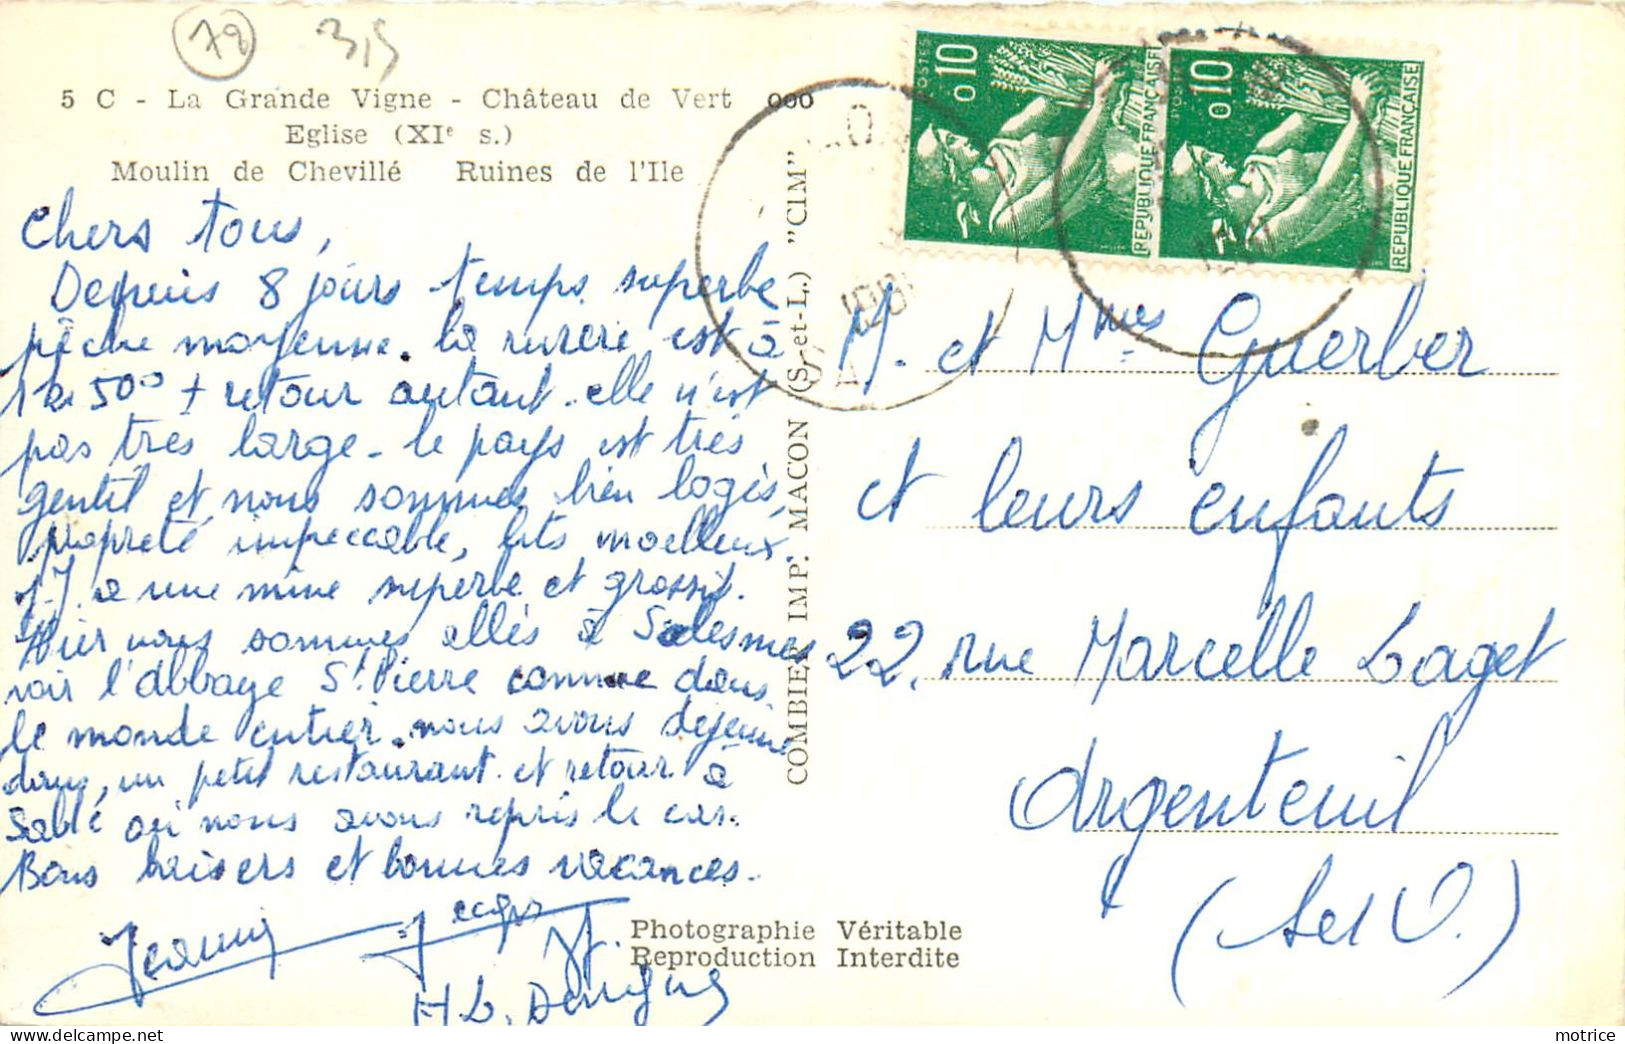 78 3,5
5 C - La Grande Vigne - Château de Vert ooo
Eglise (XIe s.)
Moulin de Chevillé Ruines de l'Ile
Chers tous,
Depuis 8 jours temps superbe
pêche moyenne. la rivière est à
1 km 500 + retour autant. elle n'est
pas très large. le pays est très
gentil et nous sommes bien logés,
propreté impeccable, lits moelleux
J.J. a une mine superbe et grossit.
Hier nous sommes allés à Solesmes
voir l'abbaye St Pierre connue dans
le monde entier. nous avons déjeuné
dans un petit restaurant et retour à
Sablé où nous avons repris le car.
Bons baisers et bonnes vacances.
COMBIER IMP. MACON (S.-et-L.) "CIM"
0,10 POSTES REPUBLIQUE FRANÇAISE
0,10 POSTES REPUBLIQUE FRANÇAISE
M. et Mmes Guerber
et leurs enfants
22, rue Marcelle Laget
Argenteuil
(S et O.)
Photographie Véritable
Reproduction Interdite
motrice